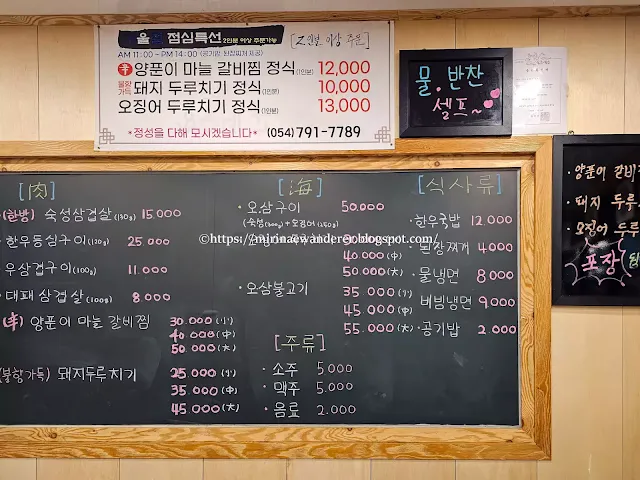 점심특선 2인분 이상 주문가능 [2인분 이상 주문]
AM 11:00 ~ PM 14:00 (공기밥 된장찌개 제공)
양푼이 마늘 갈비찜 정식(1인분) 12,000
불향가득 돼지 두루치기 정식(1인분) 10,000
오징어 두루치기 정식(1인분) 13,000
*정성을 다해 모시겠습니다* (054)791-7789
물.반찬
셀프~
[肉]
(한방) 숙성삼겹살(130g) 15.000
한우등심구이(120g) 25.000
우삼겹구이(100g) 11.000
대패삼겹살(100g) 8.000
양푼이 마늘 갈비찜 30.000(小)
40.000(中)
50.000(大)
(불향가득) 돼지두루치기 25.000(小)
35.000(中)
45.000(大)
[海]
·오.삼구이 50.000
(숙성(300g)+오징어(250g)
40.000(中)
50.000(大)
·오삼불고기 35.000(小)
45.000(中)
55.000(大)
[주류]
·소주 5.000
·맥주 5.000
·음료 2.000
[식사류]
·한우국밥 12.000
·된장찌개 4.000
·물냉면 8.000
·비빔냉면 9.000
·공기밥 2.000
·양푼이 갈비
·돼지 두루
·오징어 두루
포장
©https://mirinaewanderer.blogspot.com/